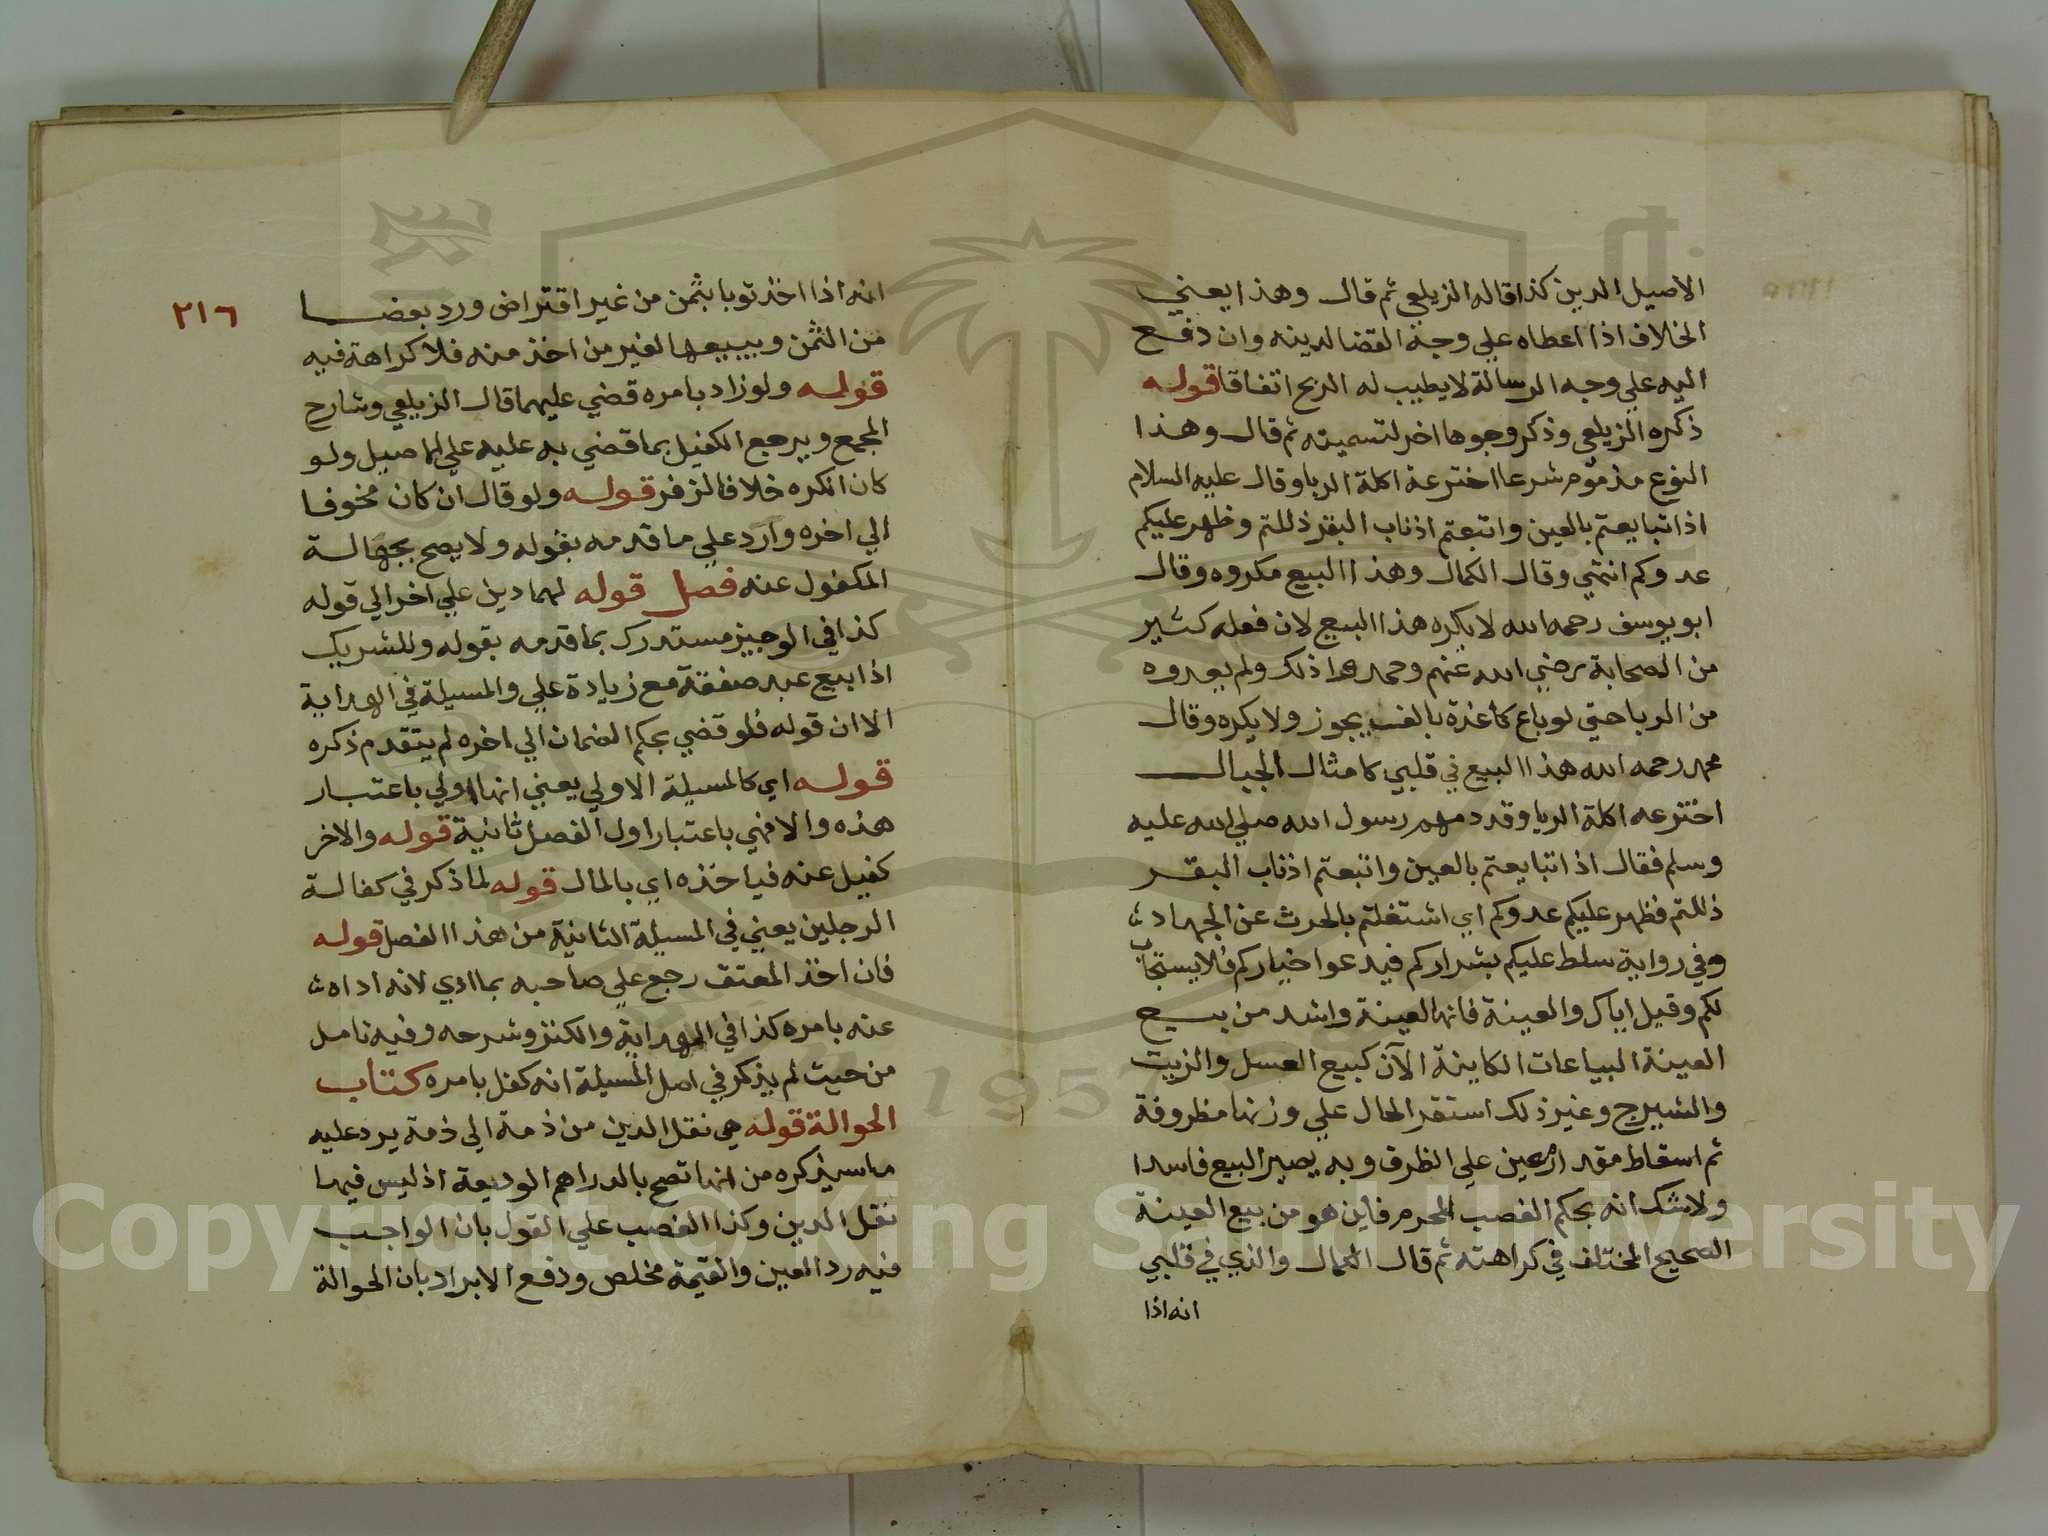 الاصيل الدين كذا قاله الزيلعي ثم قال وهذا يعني
الخلاف اذا اعطاه علي وجه القضا لدينه وان دفع
اليه علي وجه الرسالة لا يطيب له الربح اتفاقا قوله
ذكره الزيلعي وذكر وجوها اخر لتسميته ثم قال وهذا
النوع مذموم شرعا اخترعة اكلة الربا وقال عليه السلام
اذا تبايعتم بالعين واتبعتم اذناب البقر ذللتم وظهر عليكم
عدوكم انتهي وقال الكمال وهذا البيع مكروه وقال
ابو يوسف رحمه الله لا يكره هذا البيع لان فعله كثير
من الصحابة رضي الله عنهم وحمدوا ذلك ولم يعدوه
من الربا حتي لو باع كاغذة بالف يجوز ولا يكره وقال
محمد رحمه الله هذا البيع في قلبي كامثال الجبال
اخترعه اكلة الربا وقد ذمهم رسول الله صلي الله عليه
وسلم فقال اذا تبايعتم بالعين واتبعتم اذناب البقر
ذللتم فظهر عليكم عدوكم اي اشتغلتم بالحرث عن الجهاد
وفي رواية سلط عليكم بشراركم فيدعوا خياركم فلا يستجاب
لكم وقيل اياك والعينة فانها لعينة واشد من بيع
العينة البياعات الكاينة الآن كبيع العسل والزيت
والشيرج وغير ذلك استقر الحال علي وزنها مظروفة
ثم اسقاط مقدار معين علي الظرف وبه يصير البيع فاسدا
ولا شك انه بحكم الغصب المحرم فاين هو من بيع العينة
الصحيح المختلف في كراهته ثم قال الكمال والذي في قلبي
انه اذا
٢١٦
انه اذا اخذ ثوبا بثمن من غير اقتراض ورد بعضا
من الثمن وبيبيعها لغير من اخذ منه فلا كراهة فيه
قوله ولو زاد بامره قضي عليهما قال الزيلعي وشارح
المجمع ويرجع الكفيل بما قضي به عليه علي الاصيل ولو
كان انكره خلافا لزفر قوله ولو قال ان كان مخوفا
الي اخره وارد علي ما قدمه بقوله ولا يصح بجهالة
المكفول عنه فصل قوله لهما دين علي اخر الي قوله
كذا في الوجيز مستدرك بما قدمه بقوله وللشريك
اذا بيع عبد صفقة مع زيادة علي والمسيلة في الهداية
الا ان قوله فلو قضي بحكم الضمان الي اخره لم يتقدم ذكره
قوله اي كالمسيلة الاولي يعني انها اولي باعتبار
هذه والا فهي باعتبار اول الفصل ثانية قوله والاخر
كفيل عنه فياخذه اي بالمال قوله لما ذكر في كفالة
الرجلين يعني في المسيلة الثانية من هذا الفصل قوله
فان اخذ المعتق رجع علي صاحبه بما ادي لانه اداه
عنه بامره كذا في الهداية والكنز وشرحه وفيه تامل
من حيث لم يذكر في اصل المسيلة انه كفل بامره كتاب
الحوالة قوله هي نقل الدين من ذمة الي ذمة يرد عليه
ما سيذكره من انها تصح بالدراهم الوديعة اذ ليس فيها
نقل الدين وكذا الغصب علي القول بان الواجب
فيه رد العين والقيمة مخلص ودفع الايراد بان الحوالة
Copyright © King Saud University
1957